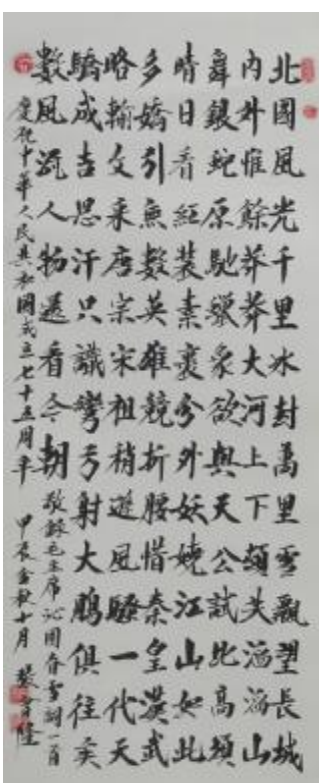 北國風光千里冰封萬里雪飄望長城
內外惟餘莽莽大河上下頓失滔滔山
舞銀蛇原馳蠟象欲與天公試比高須
晴日看紅裝素裹分外妖嬈江山如此
多嬌引無數英雄競折腰惜秦皇漢武
略輸文采唐宗宋祖稍遜風騷一代天
驕成吉思汗只識彎弓射大鵰俱往矣
數風流人物還看今朝 敬錄毛主席沁園春雪詞一首
慶祝中華人民共和國成立七十五周年 甲辰金秋十月